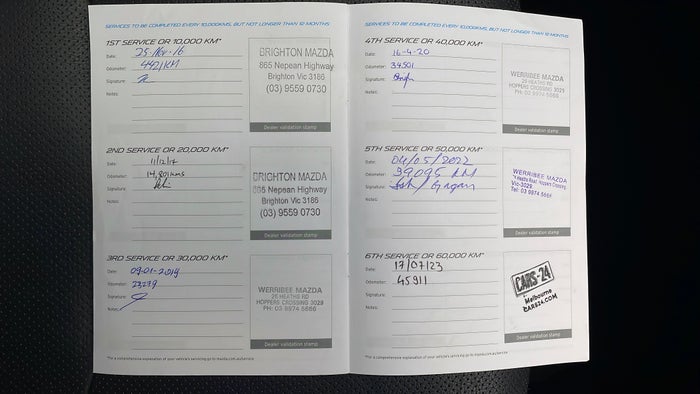 SERVICES TO BE COMPLETED EVERY 10,000KMS, BUT NOT LONGER THAN 12 MONTHS
1ST SERVICE OR 10,000 KM*
Date: 25-Nov-16
Odometer: 4421KM
Signature:
Notes:
BRIGHTON MAZDA
865 Nepean Highway
Brighton Vic 3186
(03) 9559 0730
Dealer validation stamp
2ND SERVICE OR 20,000 KM*
Date: 11/12/17
Odometer: 14,801kms
Signature:
Notes:
BRIGHTON MAZDA
865 Nepean Highway
Brighton Vic 3186
(03) 9559 0730
Dealer validation stamp
3RD SERVICE OR 30,000 KM*
Date: 09-01-2019
Odometer: 23279
Signature:
Notes:
WERRIBEE MAZDA
26 HEATHS RD
HOPPERS CROSSING 3029
PH: 03 9974 5666
Dealer validation stamp
*For a comprehensive explanation of your vehicle's servicing go to mazda.com.au/service
SERVICES TO BE COMPLETED EVERY 10,000KMS, BUT NOT LONGER THAN 12 MONTHS
4TH SERVICE OR 40,000 KM*
Date: 16-4-20
Odometer: 34501
Signature:
Notes:
WERRIBEE MAZDA
26 HEATHS RD
HOPPERS CROSSING 3029
PH: 03 9974 5666
Dealer validation stamp
5TH SERVICE OR 50,000 KM*
Date: 04/05/2022
Odometer: 39095 KM
Signature: / Gagan
Notes:
WERRIBEE MAZDA
Road, Hoppers Crossing
Vic-3029
Tel: 03 9974 5666
Dealer validation stamp
6TH SERVICE OR 60,000 KM*
Date: 17/07/23
Odometer: 45911
Signature:
Notes:
CARS-24
Melbourne
CARS24.COM
Dealer validation stamp
*For a comprehensive explanation of your vehicle's servicing go to mazda.com.au/service